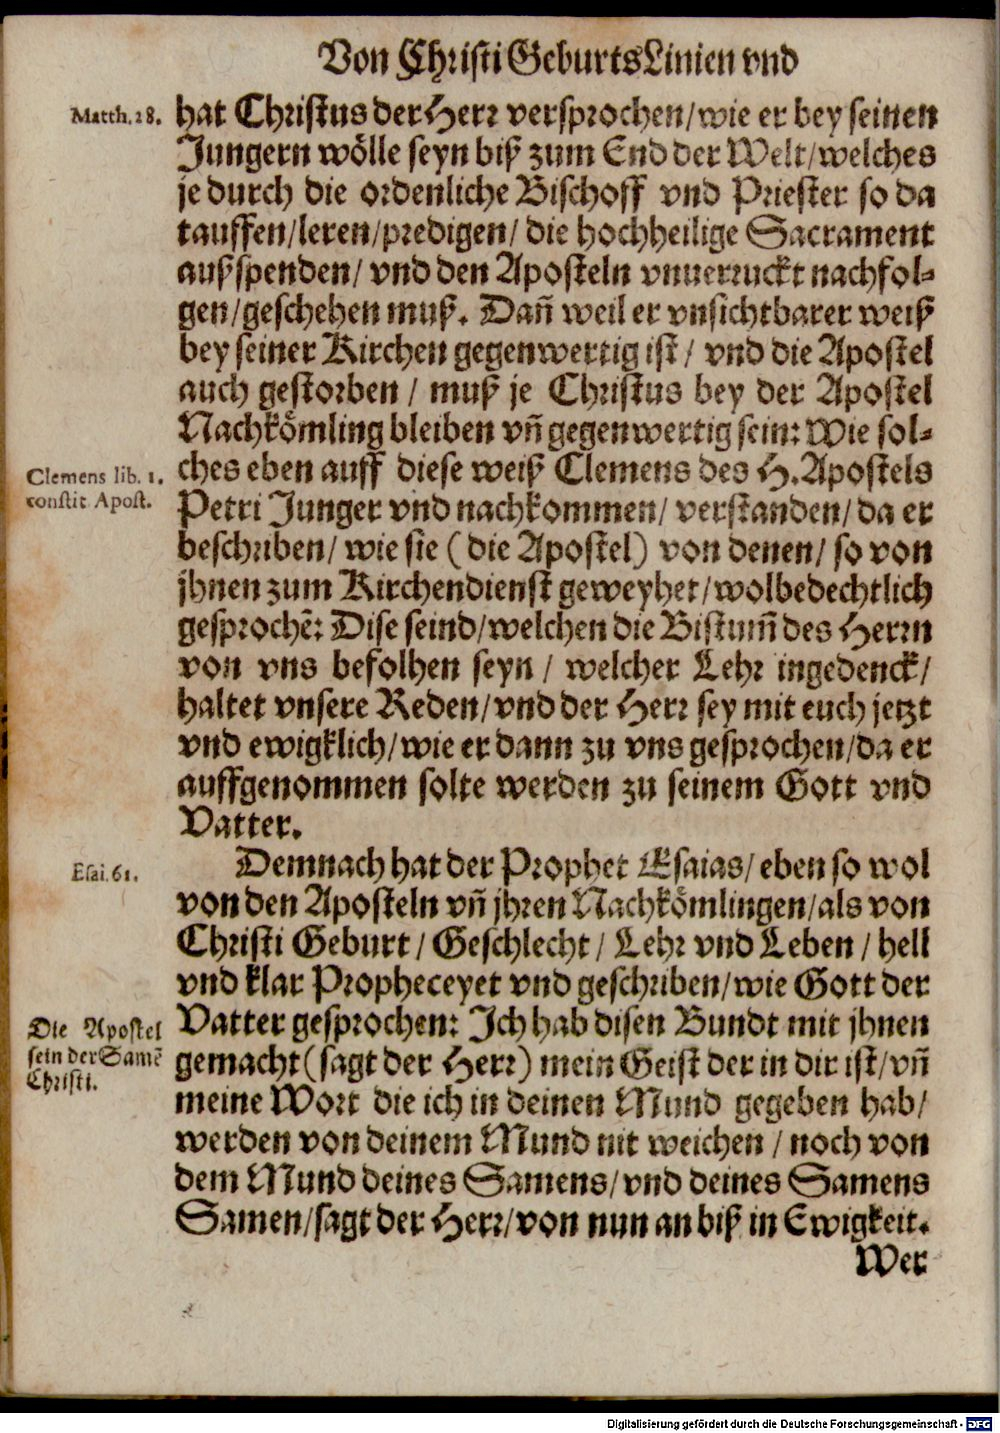 Von Christi Geburts Linien vnd
Matth. 28.
hat Christus der Herr versprochen/wie er bey seinen
Jungern wölle seyn biß zum End der Welt/welches
je durch die ordenliche Bischoff vnd Priester so da
tauffen/leren/predigen/ die hochheilige Sacrament
außspenden/ vnd den Aposteln vnuerruckt nachfol-
gen/geschehen muß. Dañ weil er vnsichtbarer weiß
bey seiner Kirchen gegenwertig ist/ vnd die Apostel
auch gestorben / muß je Christus bey der Apostel
Nachkömling bleiben vñ gegenwertig sein: Wie sol-
Clemens lib. 1.
constit Apost.
ches eben auff diese weiß Clemens des H. Apostels
Petri Junger vnd nachkommen/ verstanden/ da er
beschriben/ wie sie (die Apostel) von denen/ so von
jhnen zum Kirchendienst geweyhet/wolbedechtlich
gesprochẽ: Dise seind/welchen die Bistum̃ des Herrn
von vns befolhen seyn / welcher Lehr ingedenck/
haltet vnsere Reden/vnd der Herr sey mit euch jetzt
vnd ewigklich/wie er dann zu vns gesprochen/da er
auffgenommen solte werden zu seinem Gott vnd
Vatter.
Esai. 61.
Demnach hat der Prophet Esaias/ eben so wol
von den Aposteln vñ jhren Nachkömlingen/als von
Christi Geburt / Geschlecht / Lehr vnd Leben / hell
vnd klar Propheceyet vnd geschriben/wie Gott der
Die Apostel
sein der Samẽ
Christi.
Vatter gesprochen: Ich hab disen Bundt mit jhnen
gemacht (sagt der Herr) mein Geist der in dir ist/vñ
meine Wort die ich in deinen Mund gegeben hab/
werden von deinem Mund nit weichen / noch von
dem Mund deines Samens/vnd deines Samens
Samen/sagt der Herr/von nun an biß in Ewigkeit.
Wer
Digitalisierung gefördert durch die Deutsche Forschungsgemeinschaft - DFG